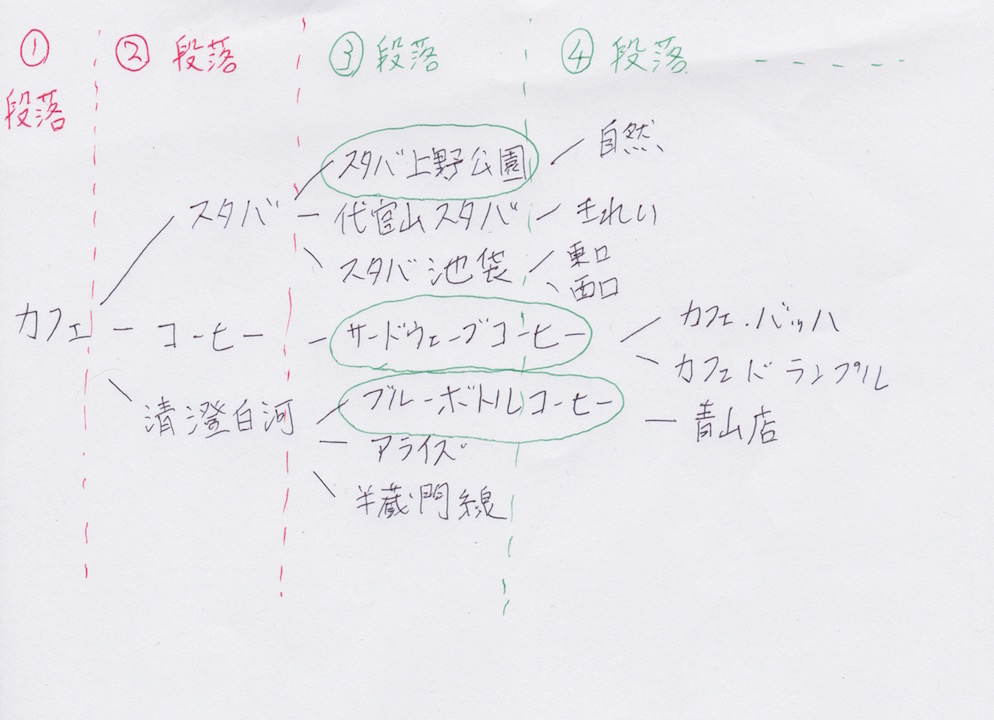 ① 段落
② 段落
③ 段落
④ 段落 - - - - -
カフェ
スタバ
スタバ上野公園
自然
代官山スタバ
きれい
スタバ池袋
東口
西口
コーヒー
サードウェーブコーヒー
カフェ・バッハ
カフェドランブル
清澄白河
ブルーボトルコーヒー
青山店
アライズ
半蔵門線